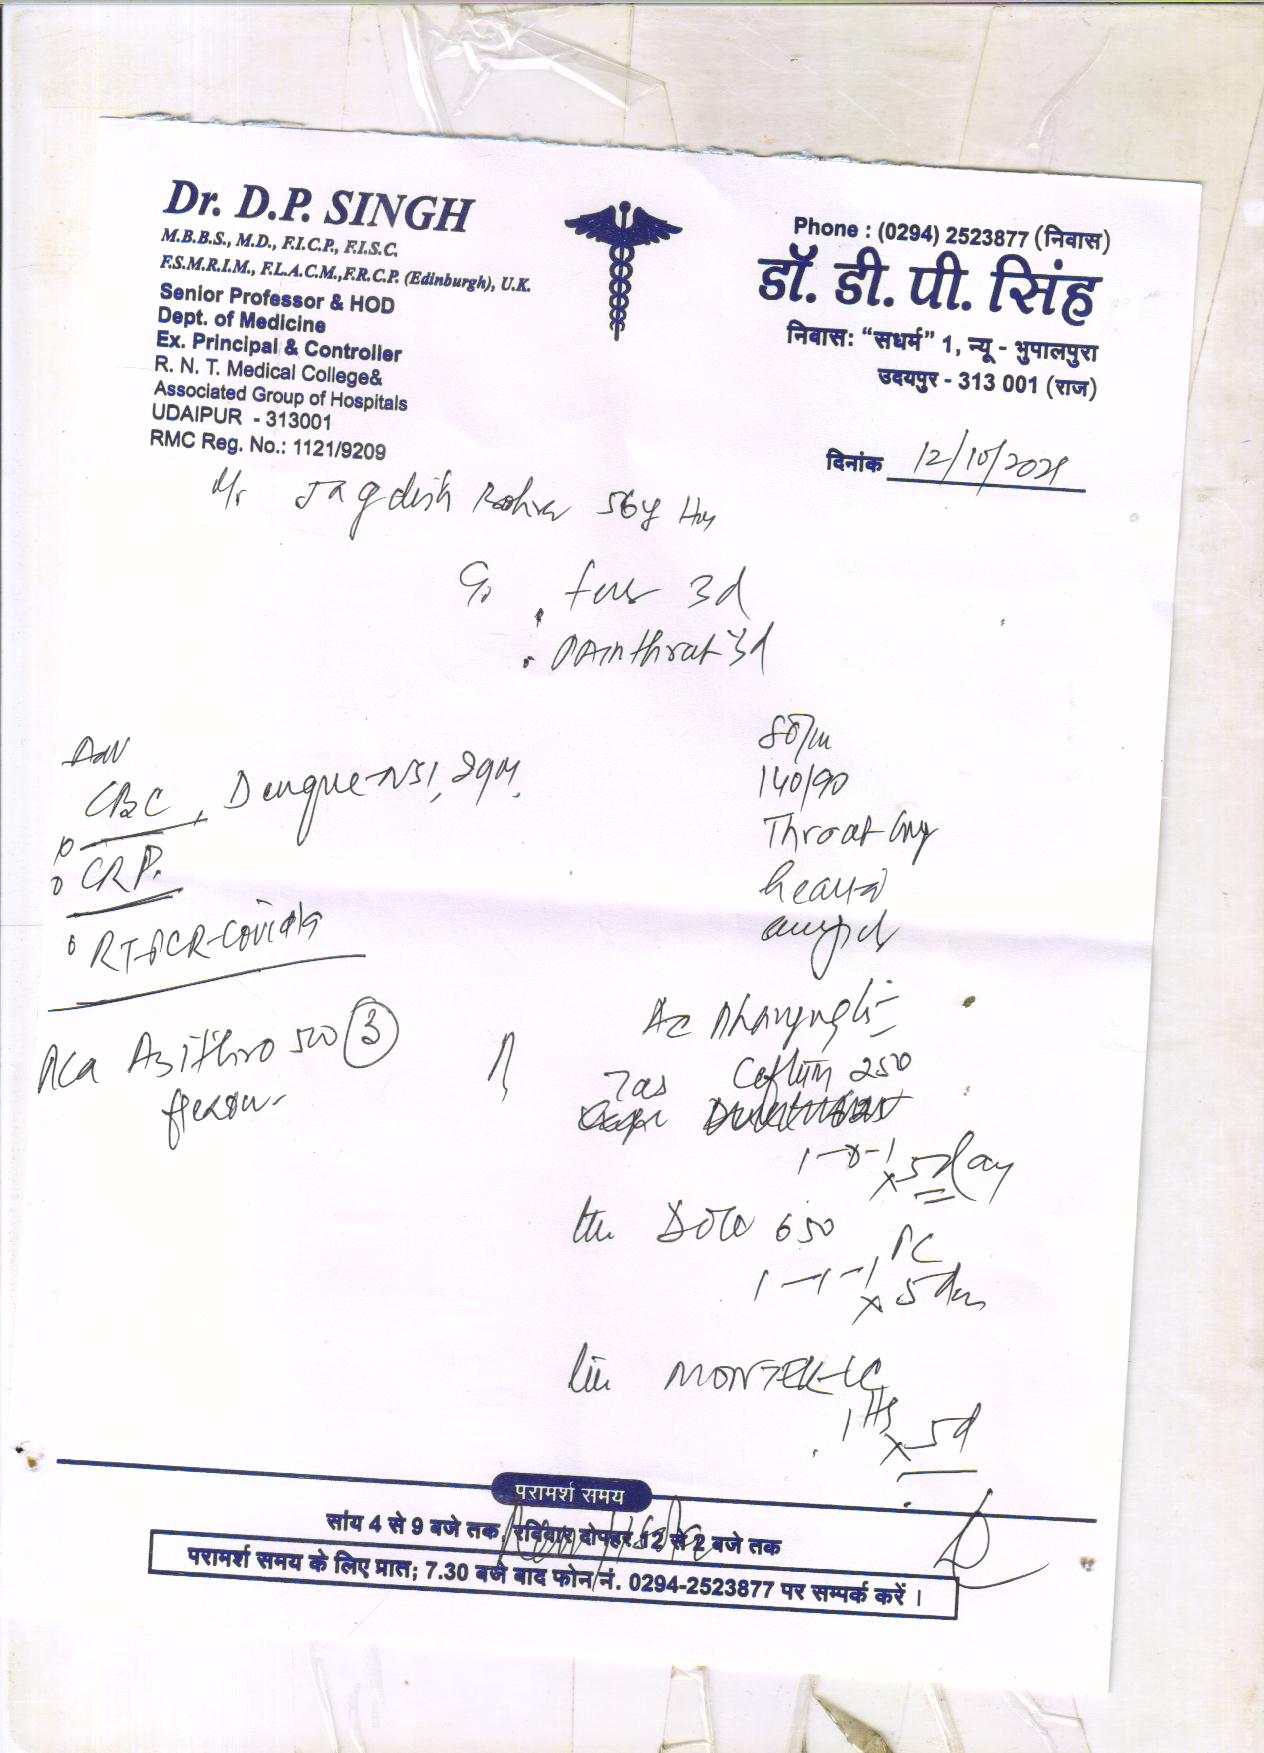 Dr. D.P. SINGH
M.B.B.S., M.D., F.I.C.P., F.I.S.C.
F.S.M.R.I.M., F.I.A.C.M.,F.R.C.P. (Edinburgh), U.K.
Senior Professor & HOD
Dept. of Medicine
Ex. Principal & Controller
R. N. T. Medical College&
Associated Group of Hospitals
UDAIPUR - 313001
RMC Reg. No.: 1121/9209
Phone : (0294) 2523877 (निवास)
डॉ. डी. पी. सिंह
निवास: “सधर्म” 1, न्यू - भुपालपुरा
उदयपुर - 313 001 (राज)
दिनांक 12/10/2021
Mr Jagdish 56y
3d
pain throat 3d
80/m
140/90
Throat
Adv
CBC, Dengue NS1,
CRP.
RT-PCR-Covid19
Azithro 500 3
Ac Pharyngitis
Ceftum 250
1-0-1 x 5day
Dolo 650
1-1-1 x 5
MONTEK-LC
1 HS x 5d
परामर्श समय
सांय 4 से 9 बजे तक, रविवार दोपहर 12 से 2 बजे तक
परामर्श समय के लिए प्रात; 7.30 बजे बाद फोन नं. 0294-2523877 पर सम्पर्क करें ।